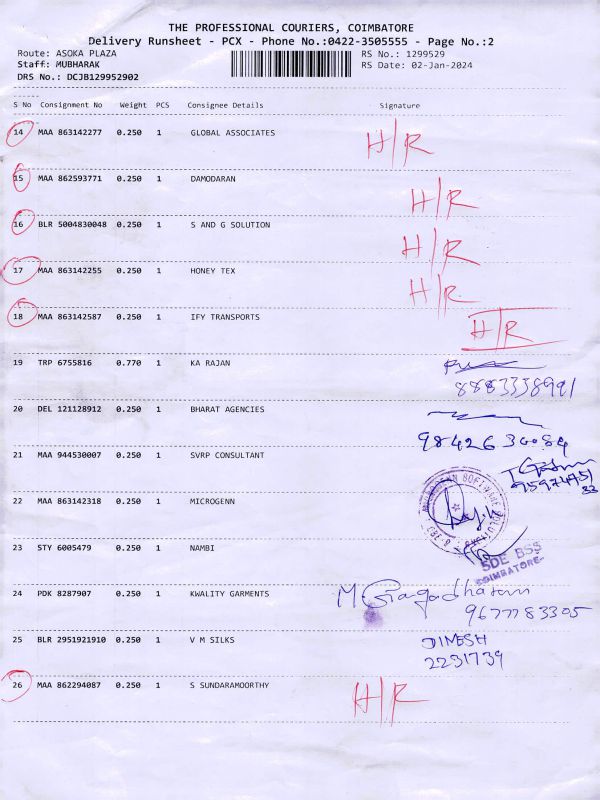 THE PROFESSIONAL COURIERS, COIMBATORE
Delivery Runsheet - PCX - Phone No.:0422-3505555 - Page No.:2
Route: ASOKA PLAZA RS No.: 1299529
Staff: MUBHARAK RS Date: 02-Jan-2024
DRS No.: DCJB129952902
S No Consignment No Weight PCS Consignee Details Signature
14 MAA 863142277 0.250 1 GLOBAL ASSOCIATES H/R
15 MAA 862593771 0.250 1 DAMODARAN H/R
16 BLR 5004830048 0.250 1 S AND G SOLUTION H/R
17 MAA 863142255 0.250 1 HONEY TEX H/R
18 MAA 863142587 0.250 1 IFY TRANSPORTS H/R
19 TRP 6755816 0.770 1 KA RAJAN
8883338991
20 DEL 121128912 0.250 1 BHARAT AGENCIES
9842630084
21 MAA 944530007 0.250 1 SVRP CONSULTANT
22 MAA 863142318 0.250 1 MICROGENN
23 STY 6005479 0.250 1 NAMBI
SDE BSS
COIMBATORE-
24 PDK 8287907 0.250 1 KWALITY GARMENTS
9677783305
25 BLR 2951921910 0.250 1 V M SILKS DINESH
2231739
26 MAA 862294087 0.250 1 S SUNDARAMOORTHY H/R